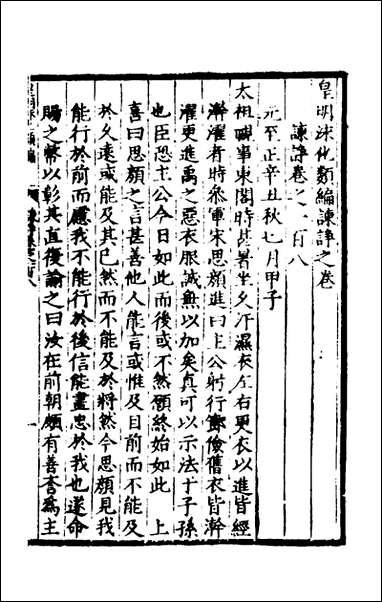 皇明泳化類編諫諍之卷
諫諍卷之一百八
元至正辛丑秋七月甲子
太祖視事東閣時甚暑坐久汗濕衣左右更衣以進皆經
澣濯者時參軍宋思顏進曰主公躬行節儉舊衣皆澣
濯更進禹之惡衣服誠無以加矣真可以示法于子孫
也臣恐主公今日如此而後或不然願終始如此　上
喜曰思顏之言甚善他人能言或惟及目前而不能及
於久遠或能及其已然而不能及於將然今思顏見我
能行於前而慮我不能行於後信能盡忠於我也遂命
賜之幣以彰其直後諭之曰汝在前朝頗有善言為主